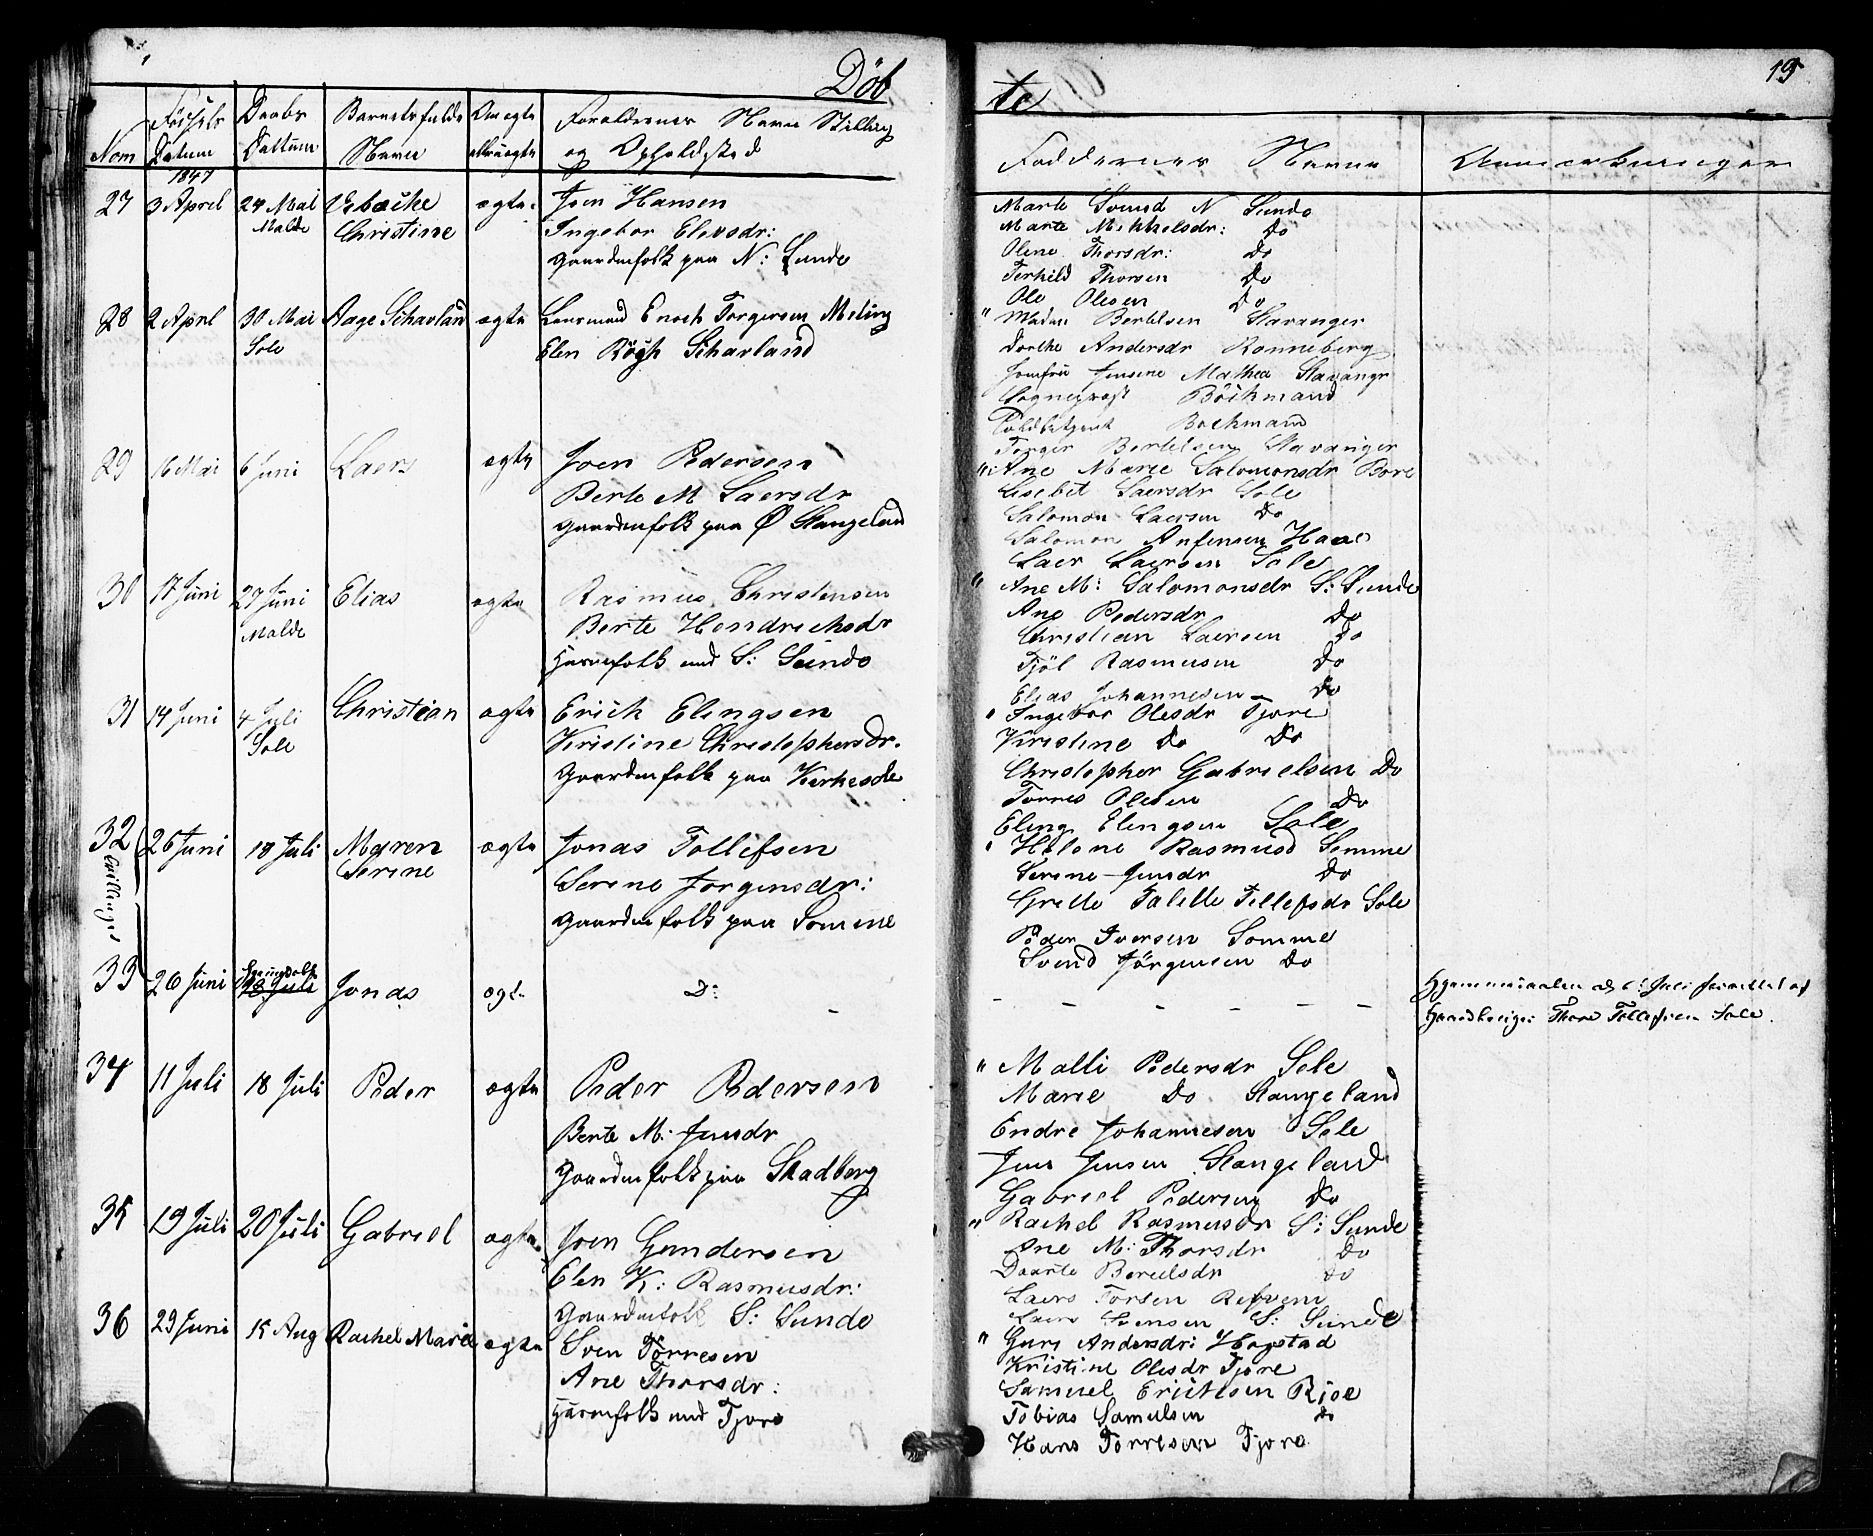 Döb
te
19
Nom
Fødsels Datum
Daabs Dattum
Barnets fulde Navn
Om ægte eller uægte
Foraldrenes Navn Stilling og Opholdsted
Faddernes Navne
Anmerkninger
1847
27 3 April 24 Mai Malde Christine ægte
Joen Hansen
Ingebor Elevsdr:
Gaardmfolk paa N: Sunde
Marte Svensd N Sunde
Marte Mikkelsdr: Do
Olene Thorsdr: Do
Terkild Thorsen Do
Ole Olesen Do
28 2 April 30 Mai Sole Aage Schavland ægte
Lensmand Enoch Torgersen Meling
Elen Bögh Schavland
" Madm Bertelsen Stavanger
Dorthe Andersdr Ronneberg
Jomfru Jensine Mathea Stavangr
Sogneprost Böckmand
Toldbetjent Bockmand
Torger Bertelsen Stavanger
29 16 Mai 6 Juni Laers ægte
Joen Pedersen
Berte M Laersdr
Gaardmfolk paa Ø Stangeland
" Ane Marie Salomonsdr Bore
Lisebet Laersdr Sole
Salomon Laersen Do
Salomon Anfensen Haae
Laer Laersen Sole
30 17 Juni 27 Juni Malde Elias ægte
Rasmus Christensen
Berte Hendrichsdr
Huusmfolk und S: Sunde
" Ane M: Salomonsdr S: Sunde
Ane Pedersdr Do
Christian Laersen Do
Tjöl Rasmusen Do
Elias Johannesen Do
31 14 Juni 4 Juli Sole Christian ægte
Erick Elingsen
Kristine Christophersdr.
Gaardmfolk paa Kirkesole
" Ingebor Olesdr Tjore
Kristine Do Do
Christopher Gabrielsen Do
Torres Olesen Do
Eling Elingsen Sole
32 26 Juni 18 Juli Maren Serine ægte
Tvillinger
Jonas Tollefsen
Serine Jorgensdr:
Gaardmfolk paa Somme
" Helene Rasmusd Somme
Serine Jensdr Do
Grette Talette Tollefsdr Sole
Peder Iversen Somme
Svend Jörgensen Do
33 26 Juni 18 Juli Jonas ægte
D:
- - - - - -
Hjemmedaaben d 6: Juli forrettet af
Gaardbruger Thore Tollefsen Sole.
34 11 Juli 18 Juli Peder ægte
Peder Pedersen
Berte M: Jensdr
Gaardmfolk paa Skadberg
" Malli Pedersdr Sole
Marie Do Stangeland
Endre Johannesen Sole
Jens Jensen Stangeland
Gabriel Pedersen Do
35 19 Juli 20 Juli Gabriel ægte
Joen Gundersen
Elen K: Rasmusdr:
Gaardmfolk S: Sunde
" Rachel Rasmusdr S: Sunde
Ane M: Thorsdr Do
Daarte Bereelsdr Do
Laers Torsen Refvem
Laers Svensen S: Sunde
36 23 Juni 15 Aug Rachel Maria ægte
Sven Törresen
Ane Thorsdr:
Huusmfolk und Tjore
" Guri Andersdr: Hogstad
Kristine Olesdr Tjore
Samuel Ericksen Rioe
Tobias Samuelsen Do
Hans Torresen Tjore